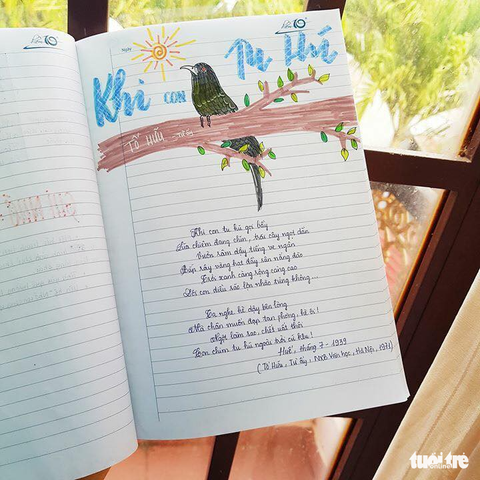 Khi con Tu Hú
TỐ HỮU
Khi con tu hú gọi bầy
Lúa chiêm đang chín, trái cây ngọt dần
Vườn râm dậy tiếng ve ngân
Bắp rây vàng hạt đầy sân nắng đào
Trời xanh càng rộng càng cao
Đôi con diều sáo lộn nhào từng không...
Ta nghe hè dậy bên lòng
Mà chân muốn đạp tan phòng, hè ôi!
Ngột làm sao, chết uất thôi
Con chim tu hú ngoài trời cứ kêu!
Huế, tháng 7 - 1939
(Tố Hữu, Từ ấy, NXB Văn học, Hà Nội, 1971)
tuổi trẻ
online